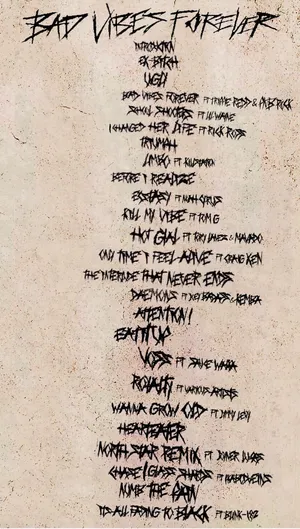 BAD VIBES FOREVER
INTRODUCTION
EX BITCH
UGLY
BAD VIBES FOREVER FT TRIPPIE REDD & PNB ROCK
SCHOOL SHOOTERS FT LIL WAYNE
I CHANGED HER LIFE FT RICK ROSS
TRIUMPH
LIMBO FT KILLSTATION
BEFORE I REALIZE
ECSTASY FT NOAH CYRUS
KILL MY VIBE FT TOM G
HOT GYAL FT TORY LANEZ & MAVADO
ONLY TIME I FEEL ALIVE FT CRAIG XEN
THE INTERLUDE THAT NEVER ENDS
DAEMONS FT JOEY BADA$$ & KEMBA
ATTENTION!
EAT IT UP
VOSS FT SAUCE WALKA
ROYALTY FT VARIOUS ARTISTS
WANNA GROW OLD FT JIMMY LEVY
HEARTEATER
NORTH STAR REMIX FT JOYNER LUCAS
CHASE / GLASS SHARDS FT
NUMB THE PAIN
IT'S ALL FADING TO BLACK FT BLINK-182